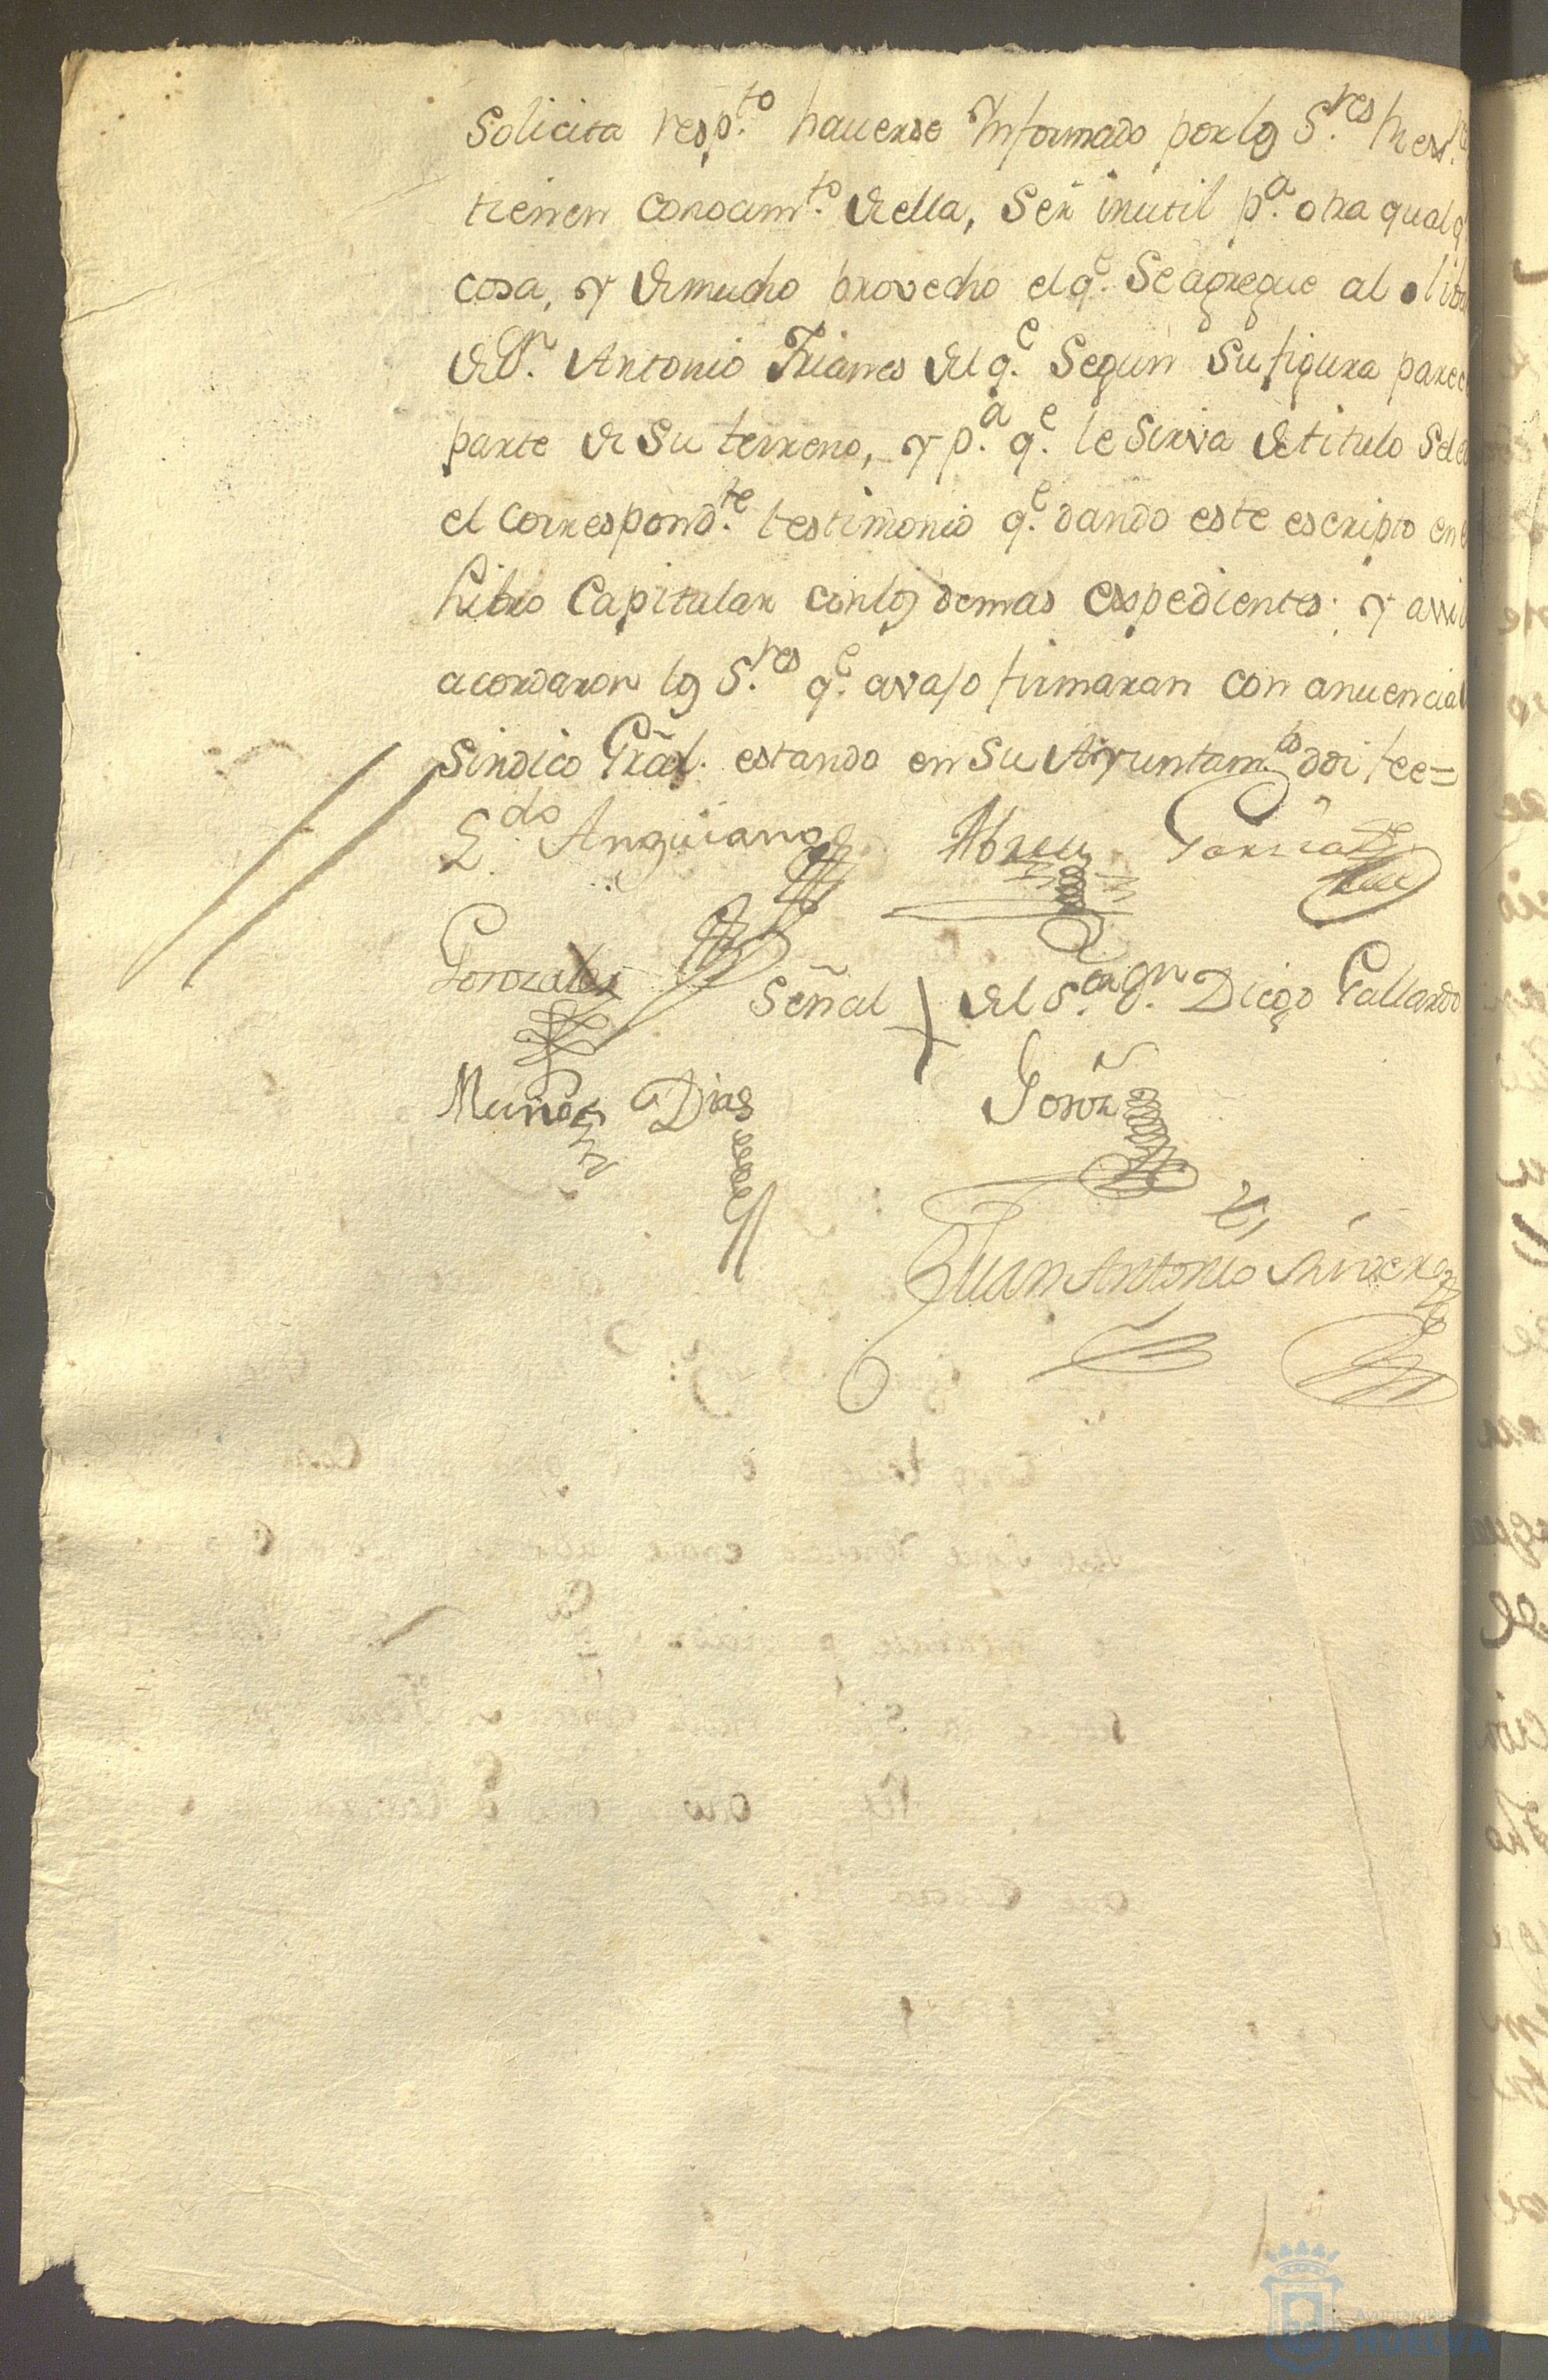 Solicita resp.to hauerse Informado por los S.res
tienen conocim.to de ella, Ser inutil p.a otra qualq
cosa, y de mucho provecho el q.e Se agregue al oliba
de D.n Antonio Trianes del q.e Segun Su figura parec
parte de Su terreno, y p.a q.e le Sirva de titulo Sele
el correspond.te testimonio q.dando este escripto en
Libro Capitular con los demas espedientes: y assi
acordaron los S.res q.e avajo firmaran con anuencia
Sindico Grãl. estando en Su Ayuntam.to doi fee=
L.do Anguiano Abreu Garcia
Gonzales Señal del S.or D.n Diego Gallardo
Muños Dias
Juan Antonio Rivera
Ayuntamiento
HUELVA